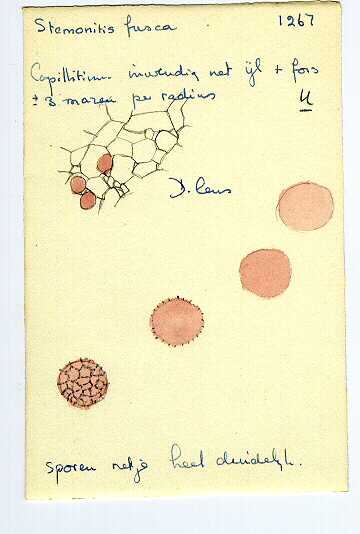 Stemonitis fusca 1267
Capillitium inwendig net ijl + fors
± 3 mazen per radius
4
D. lens
sporen netje heel duidelijk.